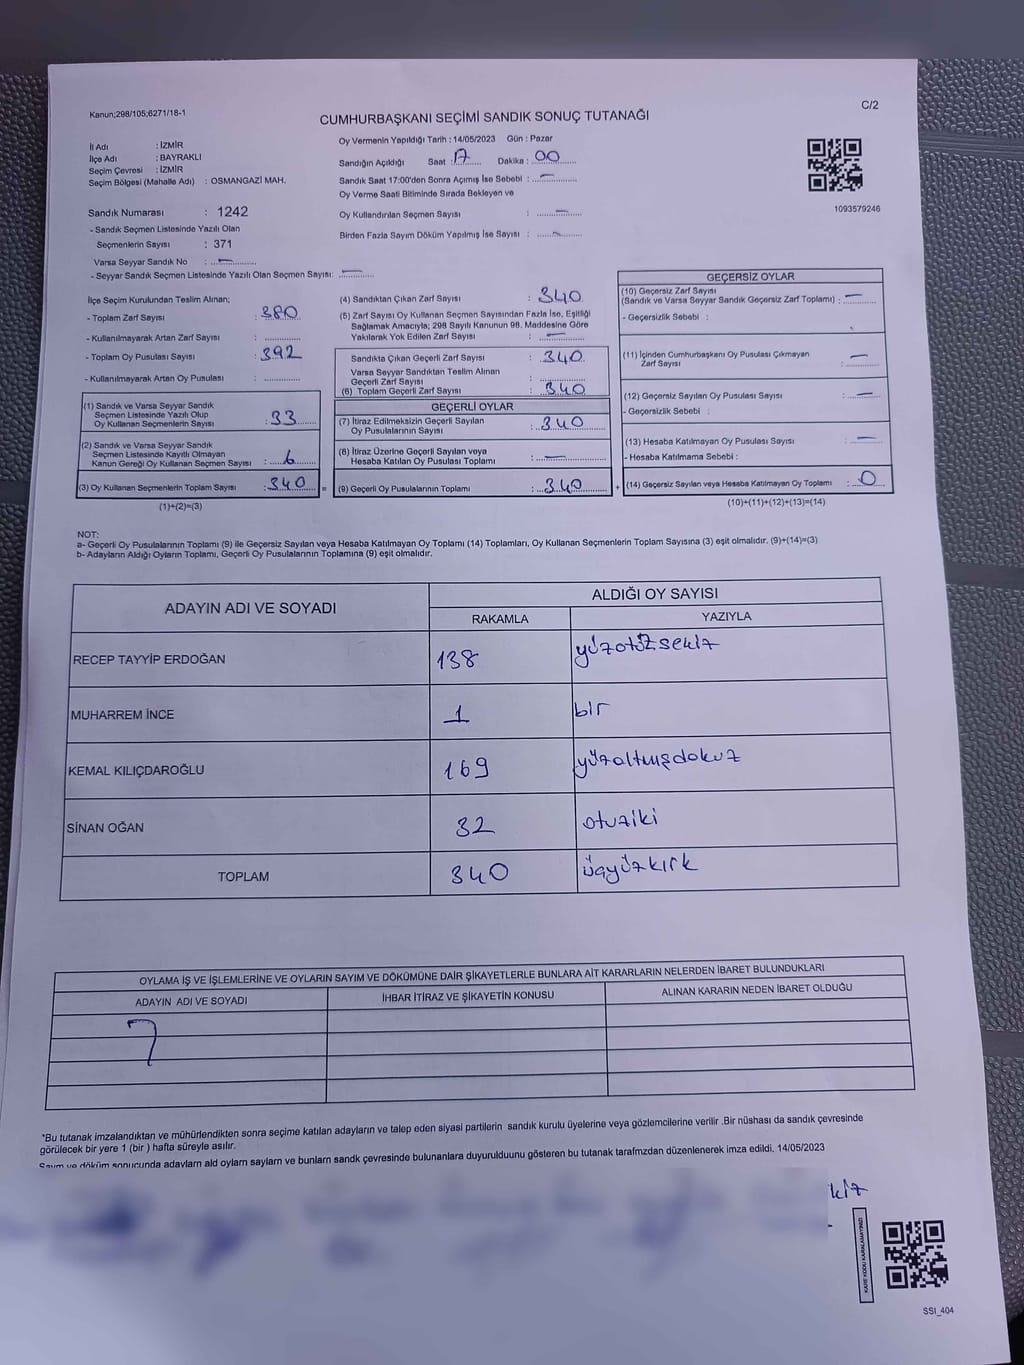 Kanun;298/105;6271/18-1
C/2
CUMHURBAŞKANI SEÇİMİ SANDIK SONUÇ TUTANAĞI
Oy Vermenin Yapıldığı Tarih : 14/05/2023 Gün : Pazar
İl Adı : İZMİR
İlçe Adı : BAYRAKLI
Seçim Çevresi : İZMİR
Seçim Bölgesi (Mahalle Adı) : OSMANGAZİ MAH.
Sandığın Açıldığı Saat : 17 Dakika : 00
Sandık Saat 17:00'den Sonra Açımış İse Sebebi : —
Oy Verme Saati Bitiminde Sırada Bekleyen ve
Oy Kullandırılan Seçmen Sayısı : —
Birden Fazla Sayım Döküm Yapılmış İse Sayısı : —
1093579246
Sandık Numarası : 1242
- Sandık Seçmen Listesinde Yazılı Olan
Seçmenlerin Sayısı : 371
Varsa Seyyar Sandık No : —
- Seyyar Sandık Seçmen Listesinde Yazılı Olan Seçmen Sayısı: —
İlçe Seçim Kurulundan Teslim Alınan;
- Toplam Zarf Sayısı : 380
- Kullanılmayarak Artan Zarf Sayısı :
- Toplam Oy Pusulası Sayısı : 392
- Kullanılmayarak Artan Oy Pusulası :
(1) Sandık ve Varsa Seyyar Sandık
Seçmen Listesinde Yazılı Olup
Oy Kullanan Seçmenlerin Sayısı : 33
(2) Sandık ve Varsa Seyyar Sandık
Seçmen Listesinde Kayıtlı Olmayan
Kanun Gereği Oy Kullanan Seçmen Sayısı : 6
(3) Oy Kullanan Seçmenlerin Toplam Sayısı : 340 =
(1)+(2)=(3)
(4) Sandıktan Çıkan Zarf Sayısı : 340
(5) Zarf Sayısı Oy Kullanan Seçmen Sayısından Fazla İse, Eşitliği
Sağlamak Amacıyla; 298 Sayılı Kanunun 98. Maddesine Göre
Yakılarak Yok Edilen Zarf Sayısı : —
Sandıkta Çıkan Geçerli Zarf Sayısı : 340
Varsa Seyyar Sandıktan Teslim Alınan
Geçerli Zarf Sayısı :
(6) Toplam Geçerli Zarf Sayısı : 340
GEÇERLİ OYLAR
(7) İtiraz Edilmeksizin Geçerli Sayılan
Oy Pusulalarının Sayısı : 340
(8) İtiraz Üzerine Geçerli Sayılan veya
Hesaba Katılan Oy Pusulası Toplamı : —
(9) Geçerli Oy Pusulalarının Toplamı : 340 +
GEÇERSİZ OYLAR
(10) Geçersiz Zarf Sayısı
(Sandık ve Varsa Seyyar Sandık Geçersiz Zarf Toplamı) : —
- Geçersizlik Sebebi :
(11) İçinden Cumhurbaşkanı Oy Pusulası Çıkmayan
Zarf Sayısı : —
(12) Geçersiz Sayılan Oy Pusulası Sayısı : —
- Geçersizlik Sebebi :
(13) Hesaba Katılmayan Oy Pusulası Sayısı : —
- Hesaba Katılmama Sebebi :
(14) Geçersiz Sayılan veya Hesaba Katılmayan Oy Toplamı : 0
(10)+(11)+(12)+(13)=(14)
NOT:
a- Geçerli Oy Pusulalarının Toplamı (9) ile Geçersiz Sayılan veya Hesaba Katılmayan Oy Toplamı (14) Toplamları, Oy Kullanan Seçmenlerin Toplam Sayısına (3) eşit olmalıdır. (9)+(14)=(3)
b- Adayların Aldığı Oyların Toplamı, Geçerli Oy Pusulalarının Toplamına (9) eşit olmalıdır.
ADAYIN ADI VE SOYADI
ALDIĞI OY SAYISI
RAKAMLA YAZIYLA
RECEP TAYYİP ERDOĞAN 138 yüzotuzsekiz
MUHARREM İNCE 1 bir
KEMAL KILIÇDAROĞLU 169 yüzaltmışdokuz
SİNAN OĞAN 32 otuziki
TOPLAM 340 üçyüzkırk
OYLAMA İŞ VE İŞLEMLERİNE VE OYLARIN SAYIM VE DÖKÜMÜNE DAİR ŞİKAYETLERLE BUNLARA AİT KARARLARIN NELERDEN İBARET BULUNDUKLARI
ADAYIN ADI VE SOYADI İHBAR İTİRAZ VE ŞİKAYETİN KONUSU ALINAN KARARIN NEDEN İBARET OLDUĞU
*Bu tutanak imzalandıktan ve mühürlendikten sonra seçime katılan adayların ve talep eden siyasi partilerin sandık kurulu üyelerine veya gözlemcilerine verilir .Bir nüshası da sandık çevresinde
görülecek bir yere 1 (bir ) hafta süreyle asılır.
Sayım ve döküm sonucunda adayların ald oyların sayların ve bunların sandk çevresinde bulunanlara duyurulduunu gösteren bu tutanak tarafmzdan düzenlenerek imza edildi. 14/05/2023
KARE KODU KARALAMAYINIZ!
SSI_404